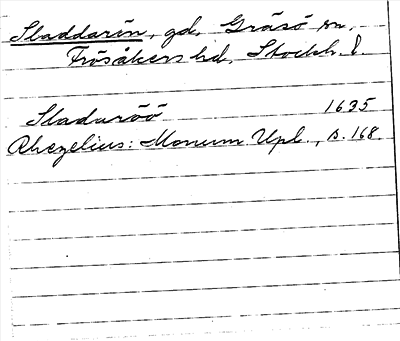 Sladdarön, gd, Gräsö sn.
Frösåkers hd, Stockh. l.
Sladaröö 1635
Rhezelius: Monum. Upl., s. 168.